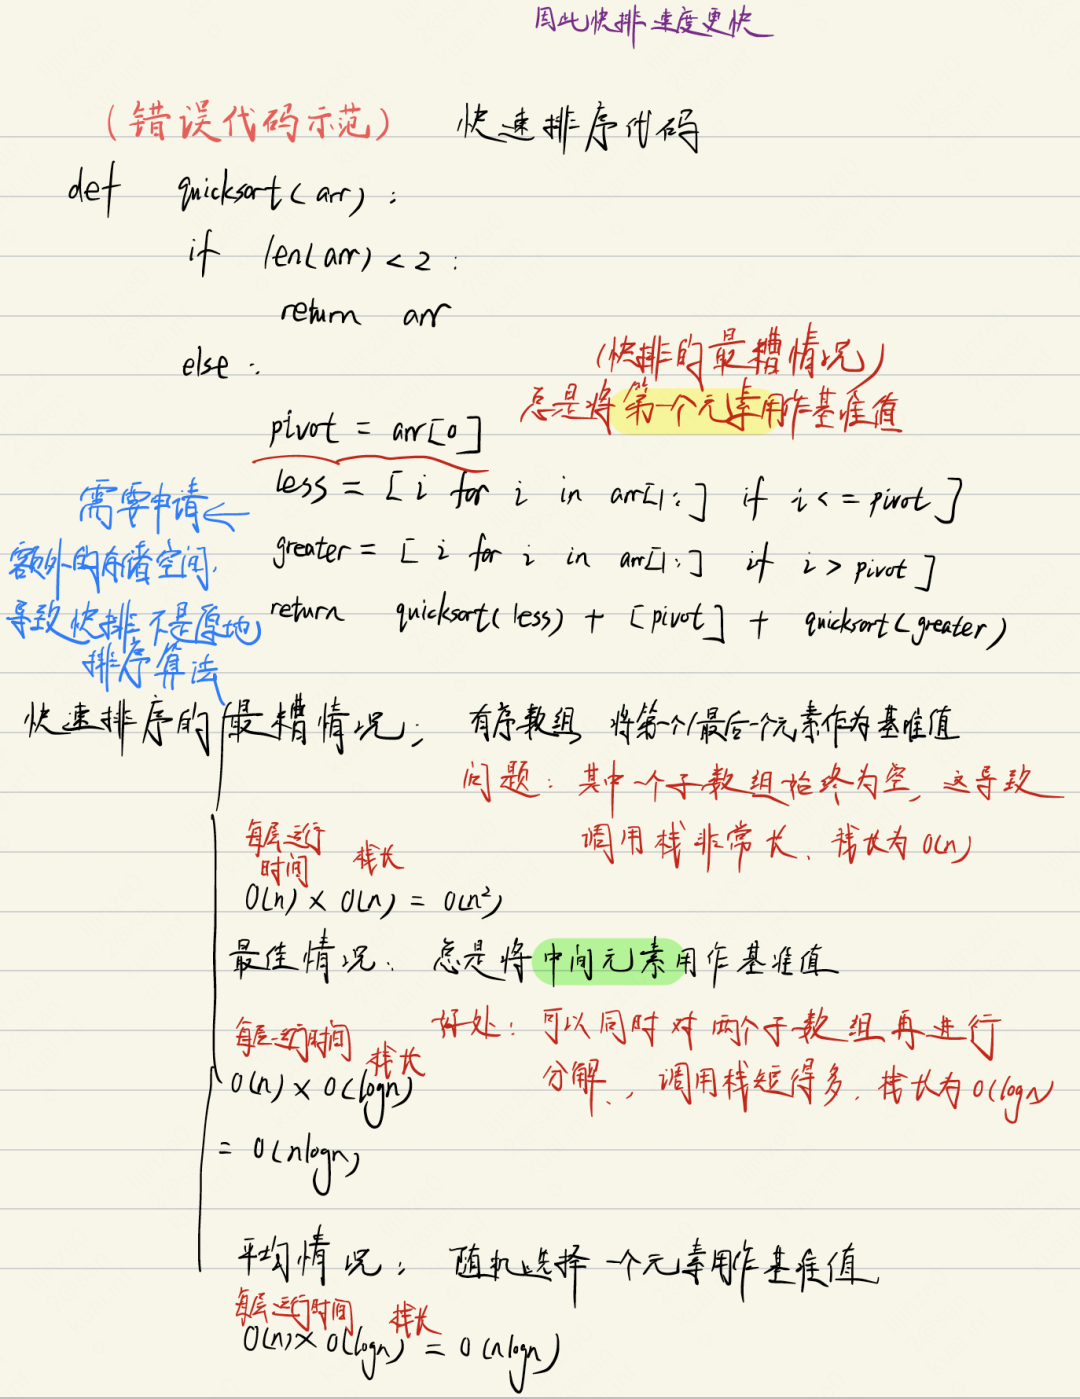 因此快排速度更快
(错误代码示范) 快速排序代码
def quicksort(arr):
if len(arr)<2:
return arr
else:
(快排的最糟情况)
总是将第一个元素用作基准值
pivot = arr[0]
less = [i for i in arr[1:] if i<=pivot]
需要申请
greater = [i for i in arr[1:] if i>pivot]
额外的存储空间,
return quicksort(less) + [pivot] + quicksort(greater)
导致快排不是原地
排序算法
快速排序的最糟情况: 有序数组 将第一个/最后一个元素作为基准值
问题: 其中一个子数组始终为空, 这导致
调用栈非常长. 栈长为O(n)
每层运行
时间 栈长
O(n) × O(n) = O(n²)
最佳情况: 总是将中间元素用作基准值
好处: 可以同时对两个子数组再进行
每层运行时间 栈长
分解, 调用栈短得多. 栈长为O(logn)
O(n) × O(logn)
= O(nlogn)
平均情况: 随机选择一个元素用作基准值
每层运行时间 栈长
O(n) × O(logn) = O(nlogn)